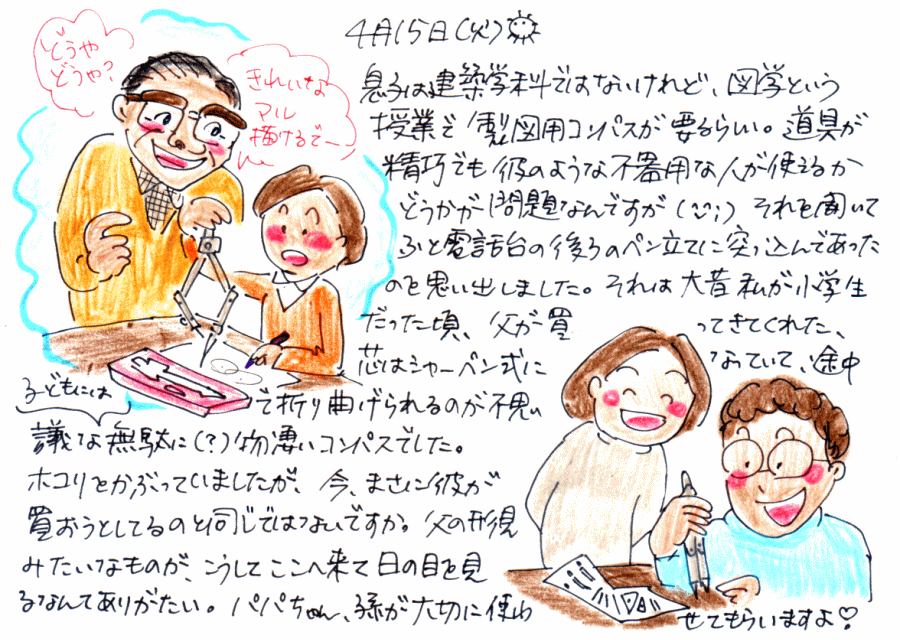 どうや
どうや?
きれいな
マル
描けるでーっ
4月15日(火)
息子は建築学科ではないけれど、図学という
授業で製図用コンパスが要るらしい。道具が
精巧でも彼のような不器用な人が使えるか
どうかが問題なんですが(^^;) それを聞いて
ふと電話台の後ろのペン立てに突っ込んであった
のを思い出しました。それは大昔私が小学生
だった頃、父が買ってきてくれた、
芯はシャーペン式になっていて、途中
で折り曲げられるのが不思
子どもには
議な無駄に(?)物凄いコンパスでした。
ホコリをかぶっていましたが、今、まさに彼が
買おうとしてるのと同じではないですか。父の形見
みたいなものが、こうしてここへ来て日の目を見
るなんてありがたい。パパちゃん、孫が大切に使わ
せてもらいますよ♡